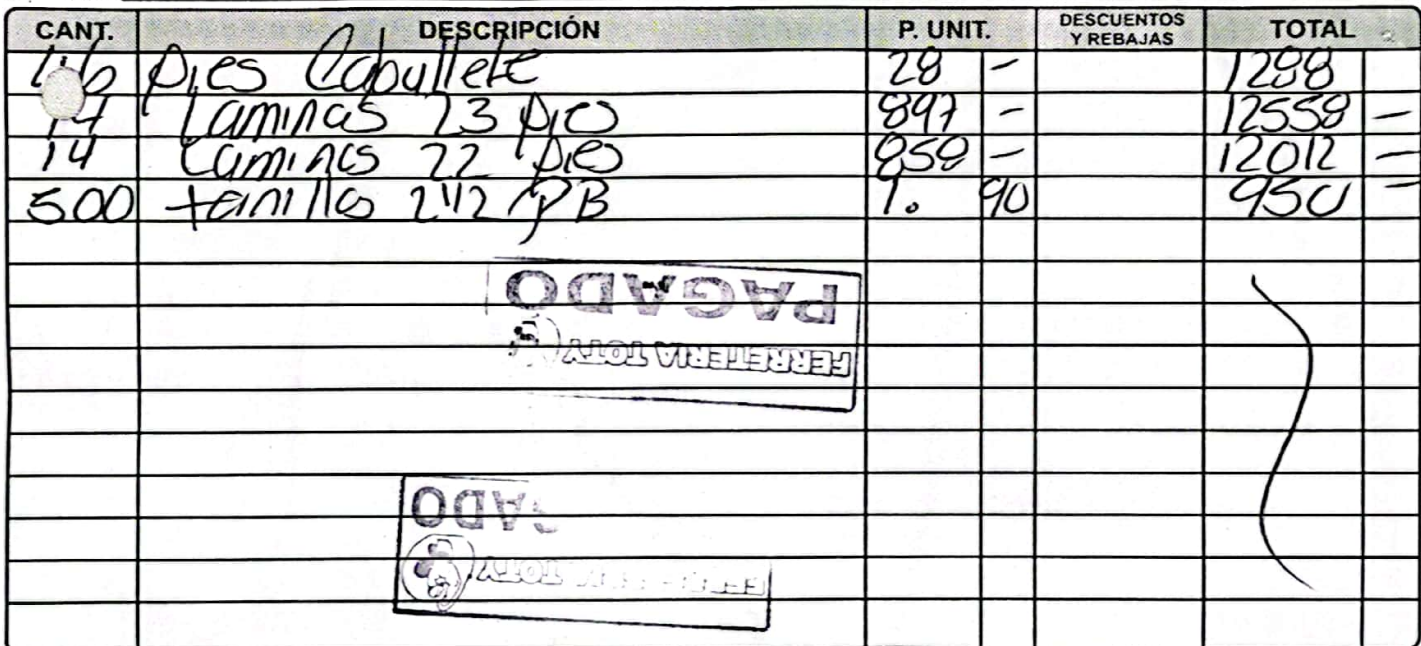 CANT. DESCRIPCIÓN P. UNIT. DESCUENTOS Y REBAJAS TOTAL
46 pies Caballete 28 - 1288
14 Laminas 23 pies 897 - 12558 -
14 Laminas 22 pies 858 - 12012 -
500 tornillos 2 1/2 PB 1. 90 950 -
PAGADO
FERRETERIA TOTY
GADO
TOTY